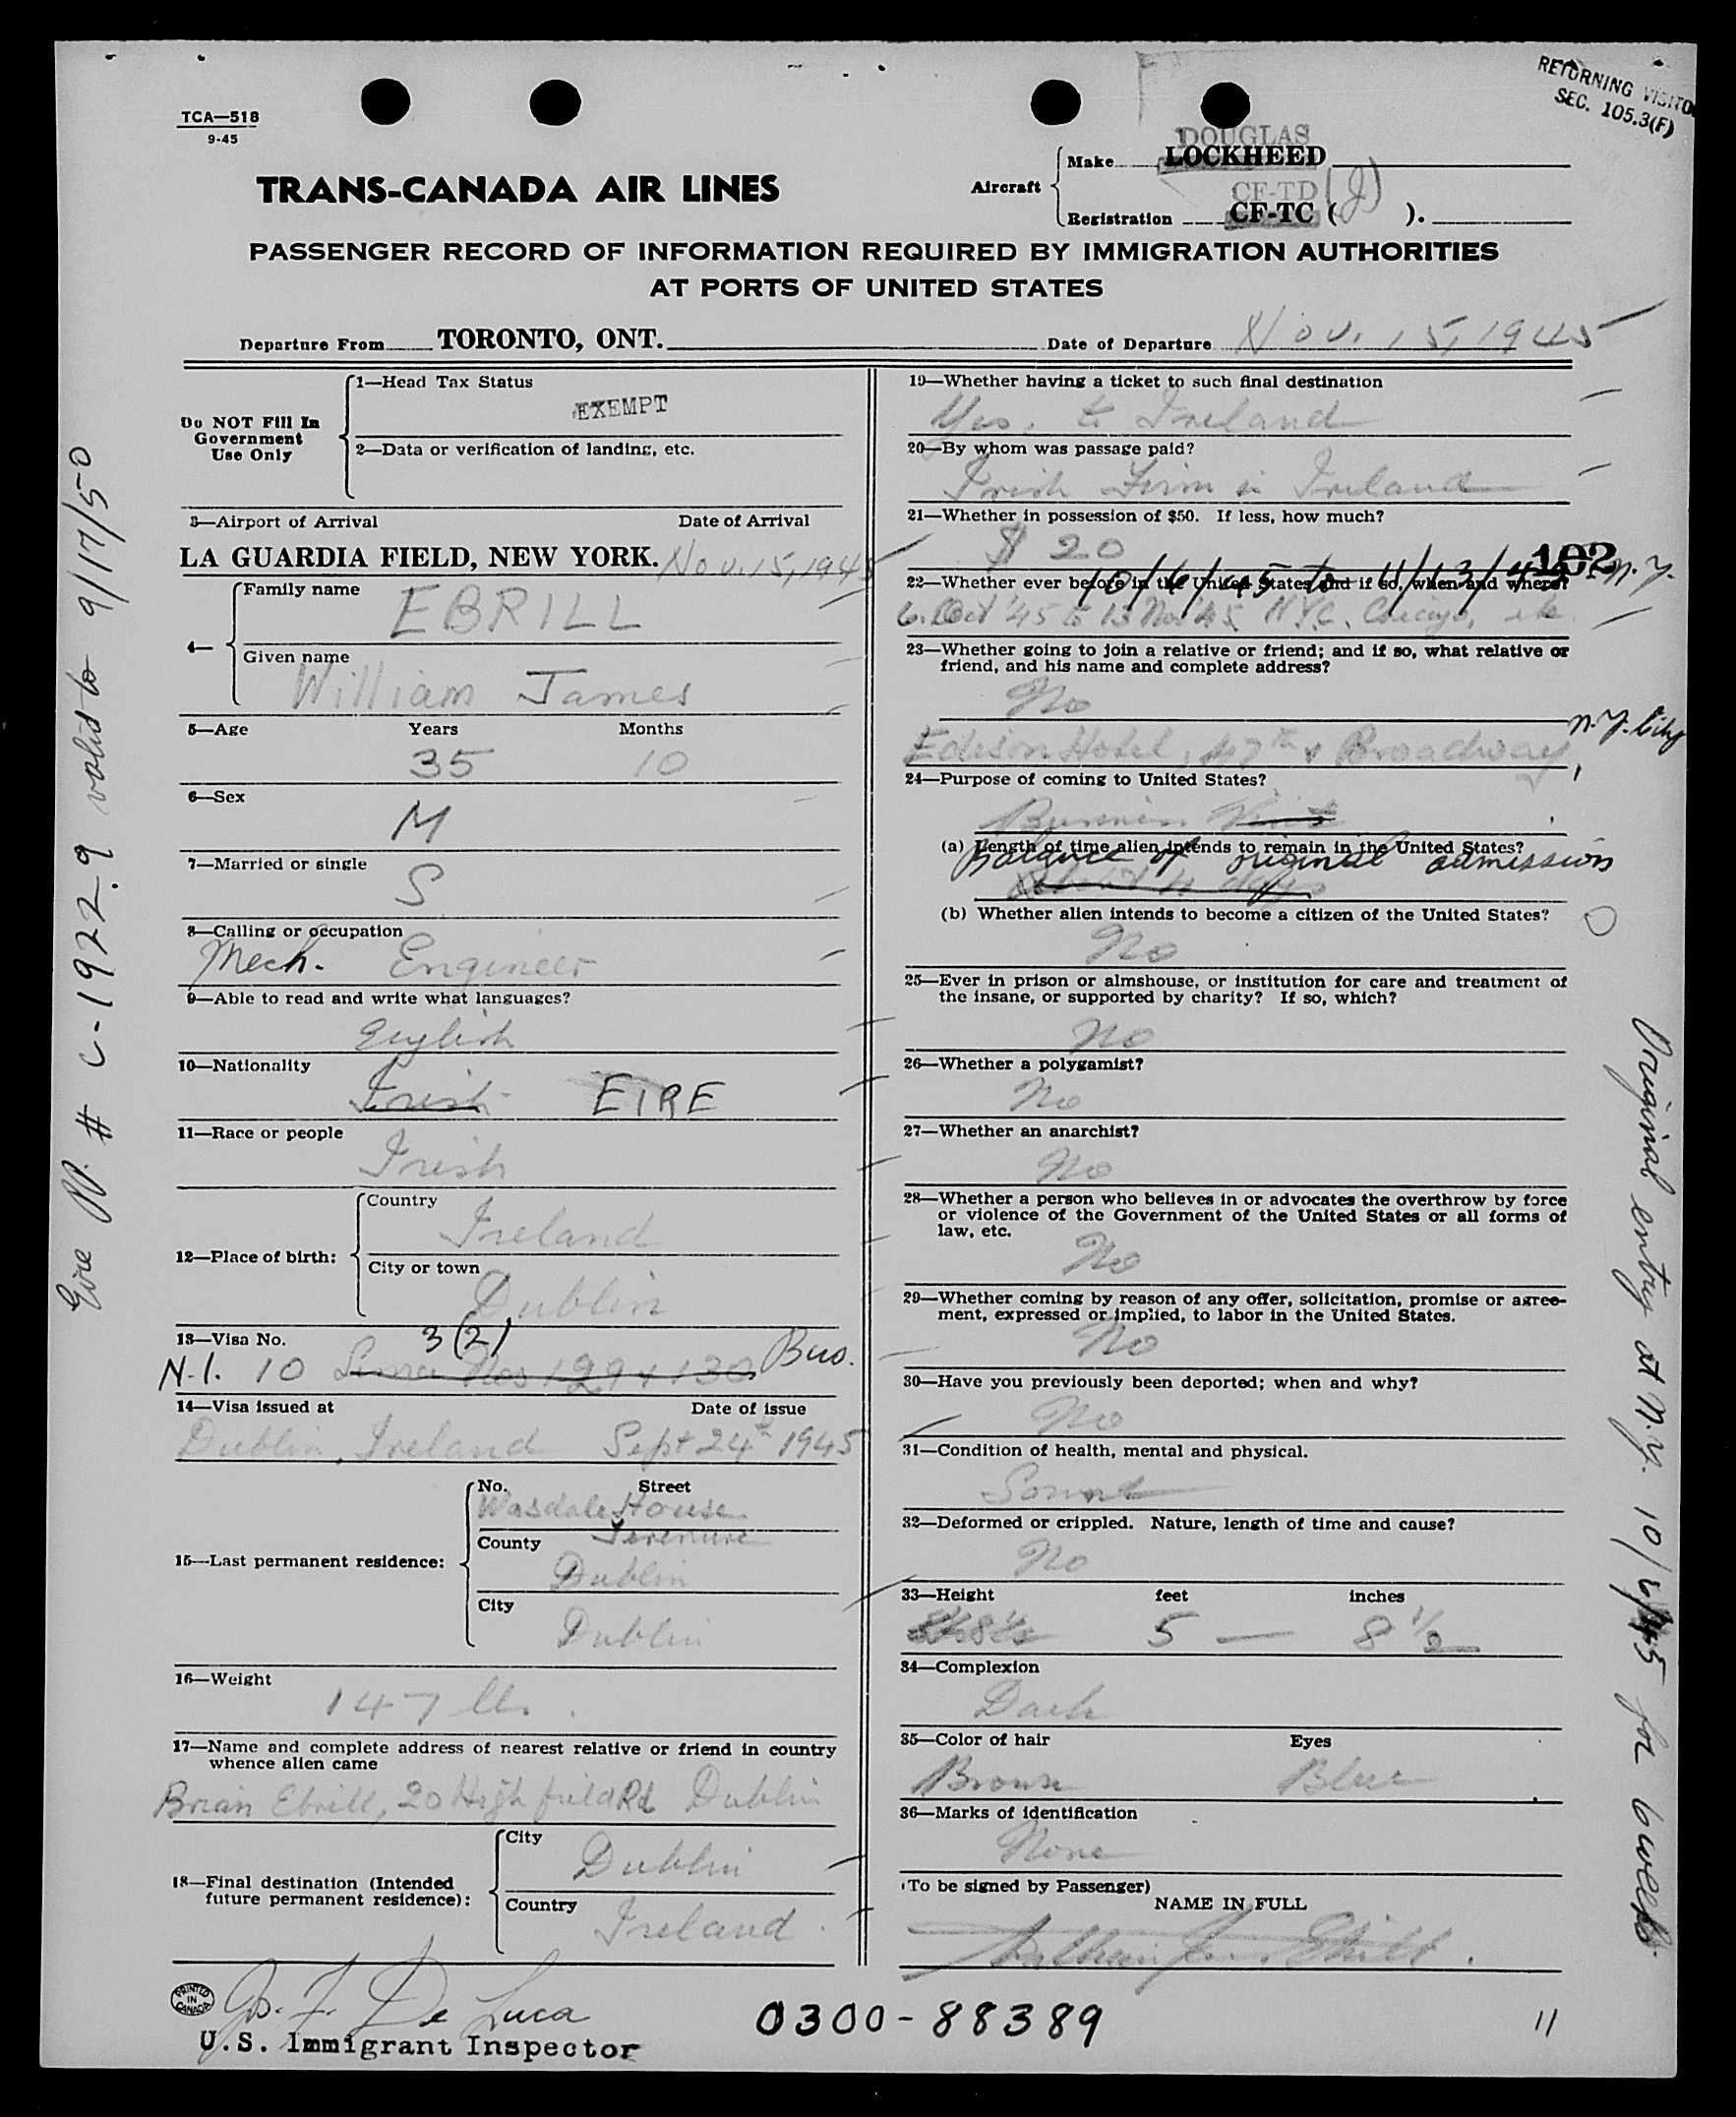 RETURNING VISITO
SEC. 105.3(F)
TCA—518
9-45
DOUGLAS
Make LOCKHEED
TRANS-CANADA AIR LINES
Aircraft
CF-TD (J)
Registration CF-TC ( ).
PASSENGER RECORD OF INFORMATION REQUIRED BY IMMIGRATION AUTHORITIES
AT PORTS OF UNITED STATES
Departure From TORONTO, ONT. Date of Departure Nov. 15, 1945
Do NOT Fill In Government Use Only
1—Head Tax Status
EXEMPT
2—Data or verification of landing, etc.
3—Airport of Arrival Date of Arrival
LA GUARDIA FIELD, NEW YORK. Nov. 15, 1945
4—
Family name
EBRILL
Given name
William James
5—Age Years Months
35 10
6—Sex
M
7—Married or single
S
8—Calling or occupation
Mech. Engineer
9—Able to read and write what languages?
English
10—Nationality
Irish EIRE
11—Race or people
Irish
12—Place of birth:
Country
Ireland
City or town
Dublin
13—Visa No. 3(2)
N.I. 10 Nos 129 & 130 Bus.
14—Visa issued at Date of issue
Dublin, Ireland Sept 24th 1945
15—Last permanent residence:
No. Street
Wasdale House
Terenure
County
Dublin
City
Dublin
16—Weight
147 lbs.
17—Name and complete address of nearest relative or friend in country
whence alien came
Brian Ebrill, 20 Highfield Rd Dublin
18—Final destination (Intended
future permanent residence):
City
Dublin
Country
Ireland
PRINTED IN CANADA
Js. F. De Luca
U.S. Immigrant Inspector
19—Whether having a ticket to such final destination
Yes, to Ireland
20—By whom was passage paid?
Irish Firm in Ireland
21—Whether in possession of $50. If less, how much?
$ 20
102
10/6/45 to 11/13/45 N.Y.
22—Whether ever before in the United States and if so, when and where?
6. Oct '45 to 13 Nov '45 N.Y.C. Chicago, etc.
23—Whether going to join a relative or friend; and if so, what relative or
friend, and his name and complete address?
No
N.Y. City
Edison Hotel, 47th & Broadway,
24—Purpose of coming to United States?
Business Visit
(a) Length of time alien intends to remain in the United States?
Balance of original admission
(b) Whether alien intends to become a citizen of the United States?
No
25—Ever in prison or almshouse, or institution for care and treatment of
the insane, or supported by charity? If so, which?
No
26—Whether a polygamist?
No
27—Whether an anarchist?
No
28—Whether a person who believes in or advocates the overthrow by force
or violence of the Government of the United States or all forms of
law, etc.
No
29—Whether coming by reason of any offer, solicitation, promise or agree-
ment, expressed or implied, to labor in the United States.
No
30—Have you previously been deported; when and why?
No
31—Condition of health, mental and physical.
Sound
32—Deformed or crippled. Nature, length of time and cause?
No
33—Height feet inches
5 — 8 1/2
34—Complexion
Dark
35—Color of hair Eyes
Brown Blue
36—Marks of identification
None
(To be signed by Passenger)
NAME IN FULL
William Jas. Ebrill.
0300-88389
11
Eire PP. # C-19229 valid to 9/17/50
Original entry at N.Y. 10/6/45 for 6 weeks